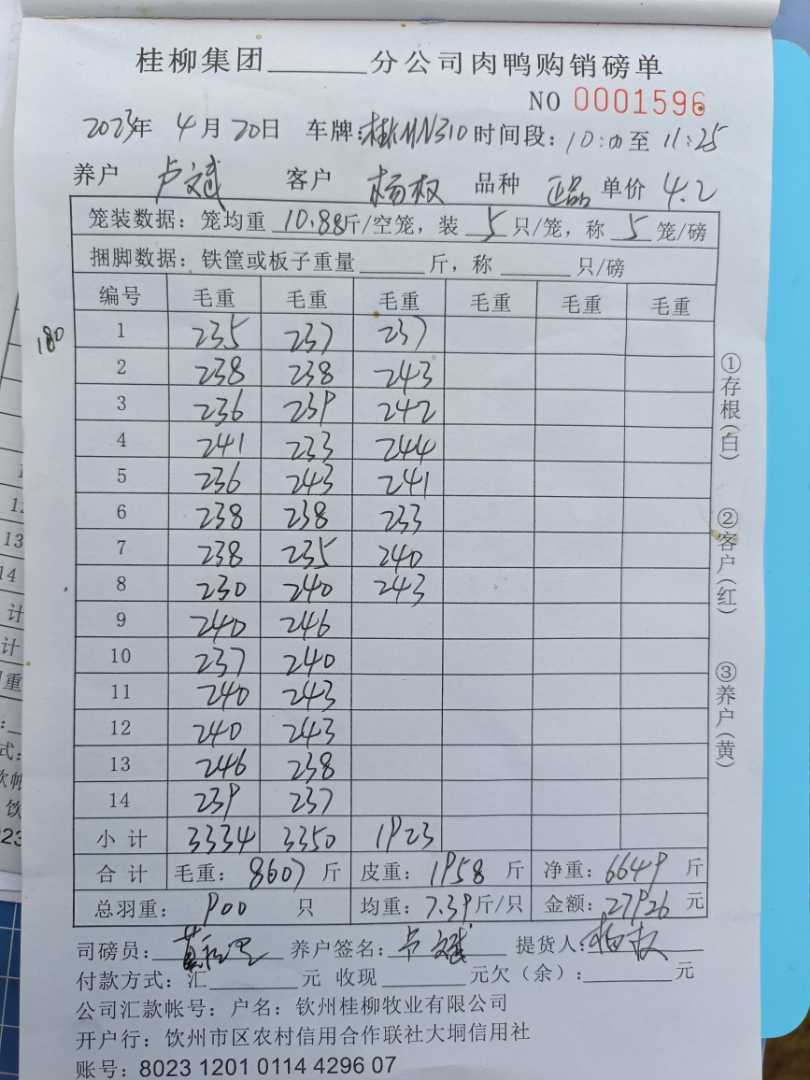 桂柳集团______分公司肉鸭购销磅单
NO 0001596
2023年 4月20日 车牌:桂KMN310 时间段:10:00至 11:25
养户 卢文斌 客户 杨权 品种 正品 单价 4.2
笼装数据：笼均重 10.88斤/空笼，装 5 只/笼，称 5 笼/磅
捆脚数据：铁筐或板子重量______斤，称______只/磅
编号 毛重 毛重 毛重 毛重 毛重 毛重
180
1 235 237 237
2 238 238 243
3 236 239 242
4 241 233 244
5 236 243 241
6 238 238 233
7 238 235 240
8 230 240 243
9 240 246
10 237 240
11 240 243
12 240 243
13 246 238
14 239 237
小计 3334 3350 1923
合计 毛重：8607 斤 皮重：1958 斤 净重：6649 斤
总羽重：900 只 均重：7.39斤/只 金额：27926 元
司磅员： 养户签名：卢文斌 提货人：杨权
付款方式：汇______元 收现______元欠（余）：______元
公司汇款帐号：户名：钦州桂柳牧业有限公司
开户行：饮州市区农村信用合作联社大垌信用社
账号：8023 1201 0114 4296 07
①存根（白）
②客户（红）
③养户（黄）